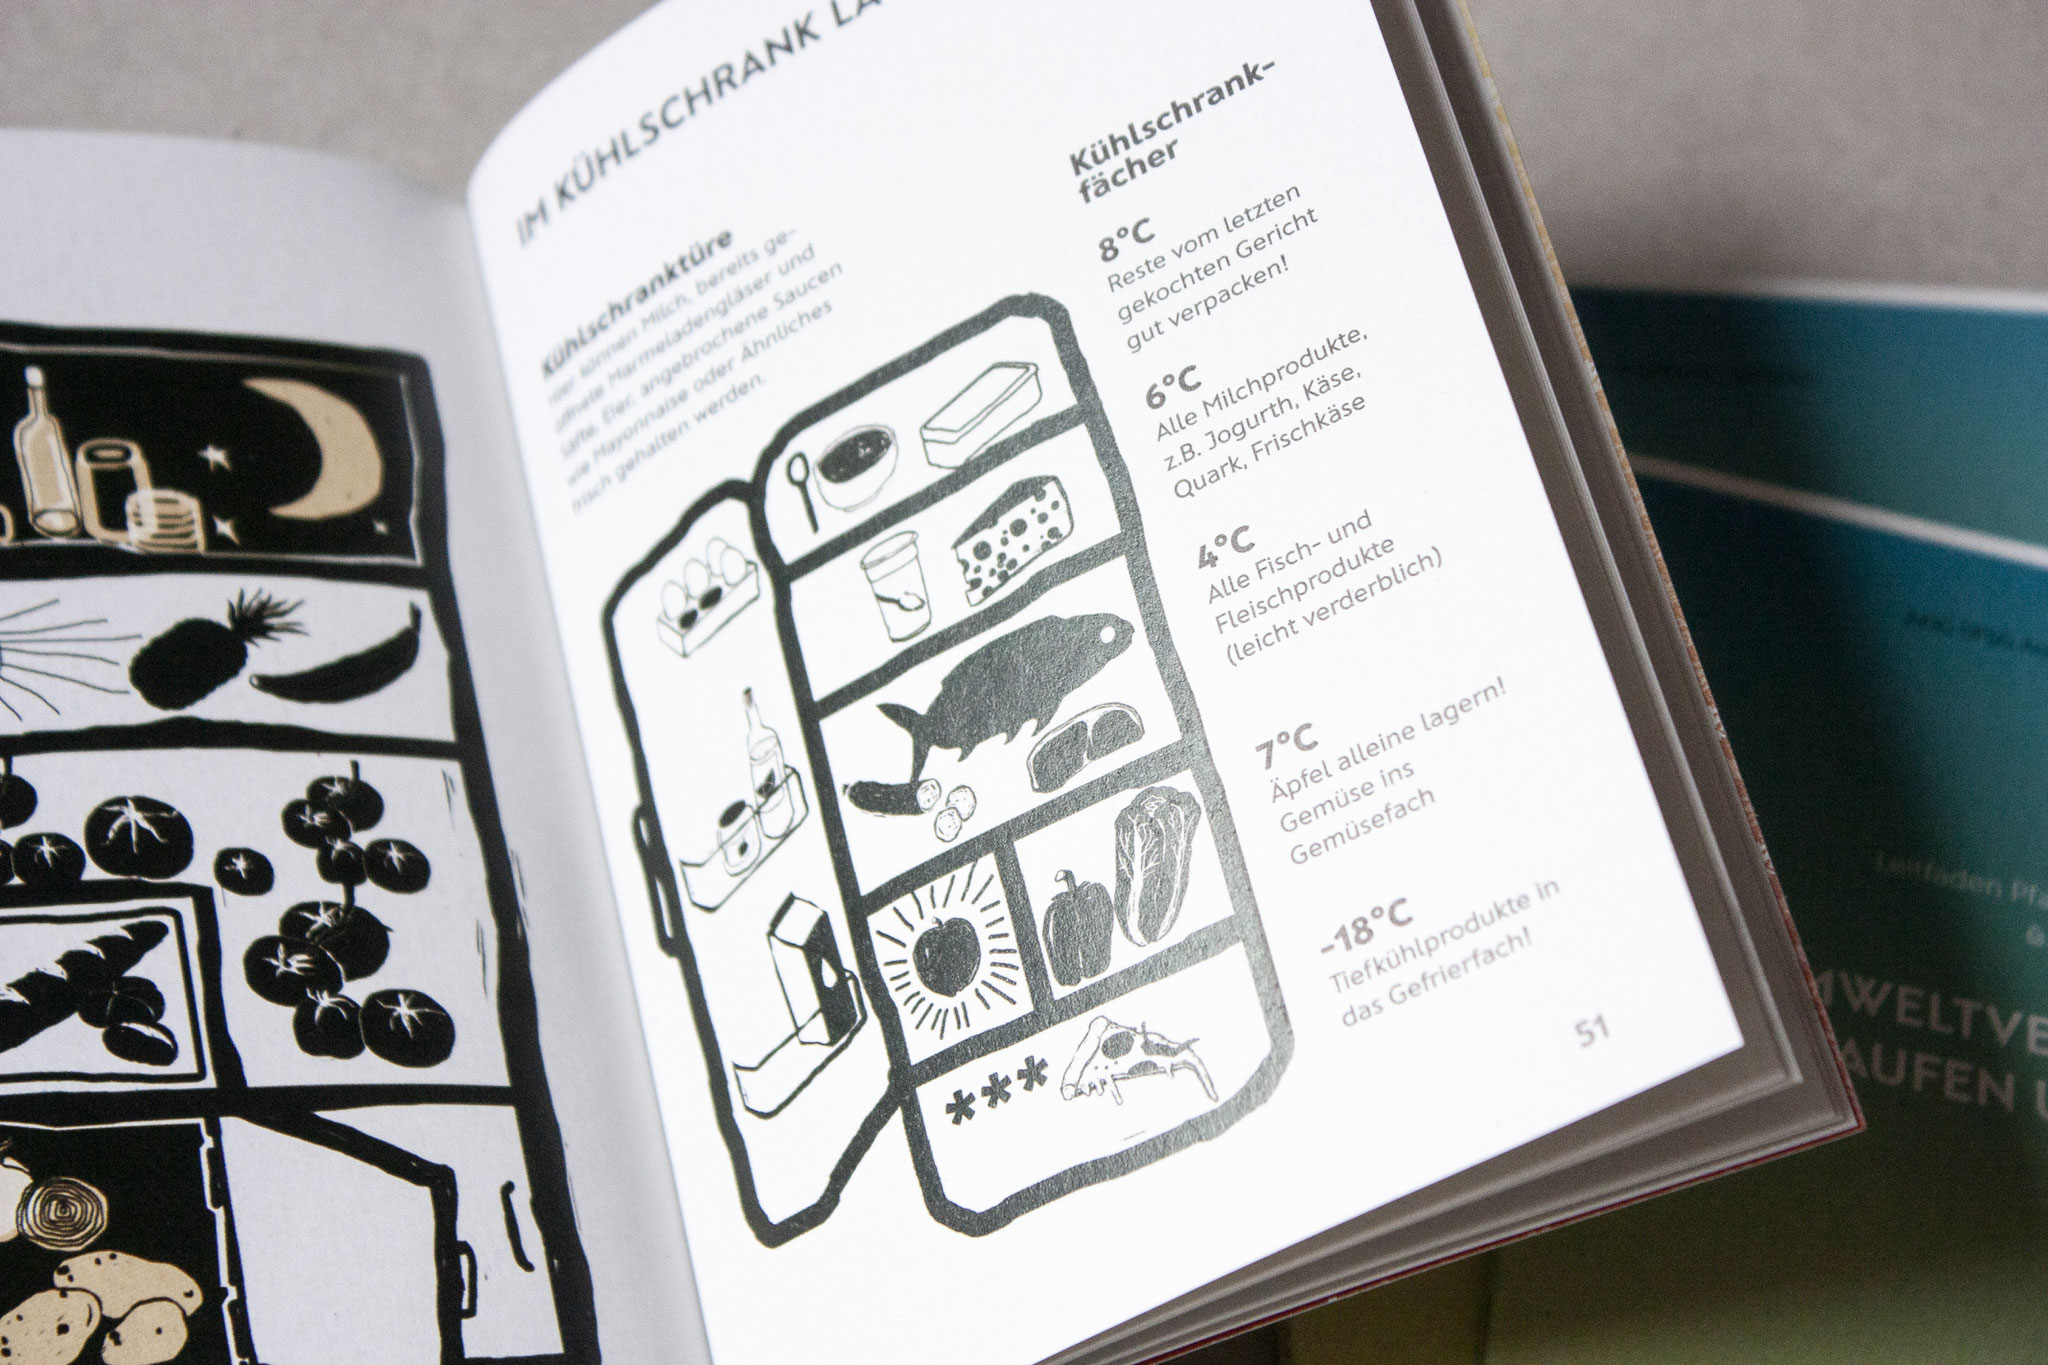 IM KÜHLSCHRANK LA
Kühlschranktüre
Hier können Milch, bereits ge-
öffnete Marmeladengläser und
Säfte, Eier, angebrochene Saucen
wie Mayonnaise oder Ähnliches
frisch gehalten werden.
Kühlschrank-
fächer
8°C
Reste vom letzten
gekochten Gericht
gut verpacken!
6°C
Alle Milchprodukte,
z.B. Jogurth, Käse,
Quark, Frischkäse
4°C
Alle Fisch- und
Fleischprodukte
(leicht verderblich)
7°C
Äpfel alleine lagern!
Gemüse ins
Gemüsefach
-18°C
Tiefkühlprodukte in
das Gefrierfach!
51
Leitfaden Pfa
&
MWELTVE
AUFEN U